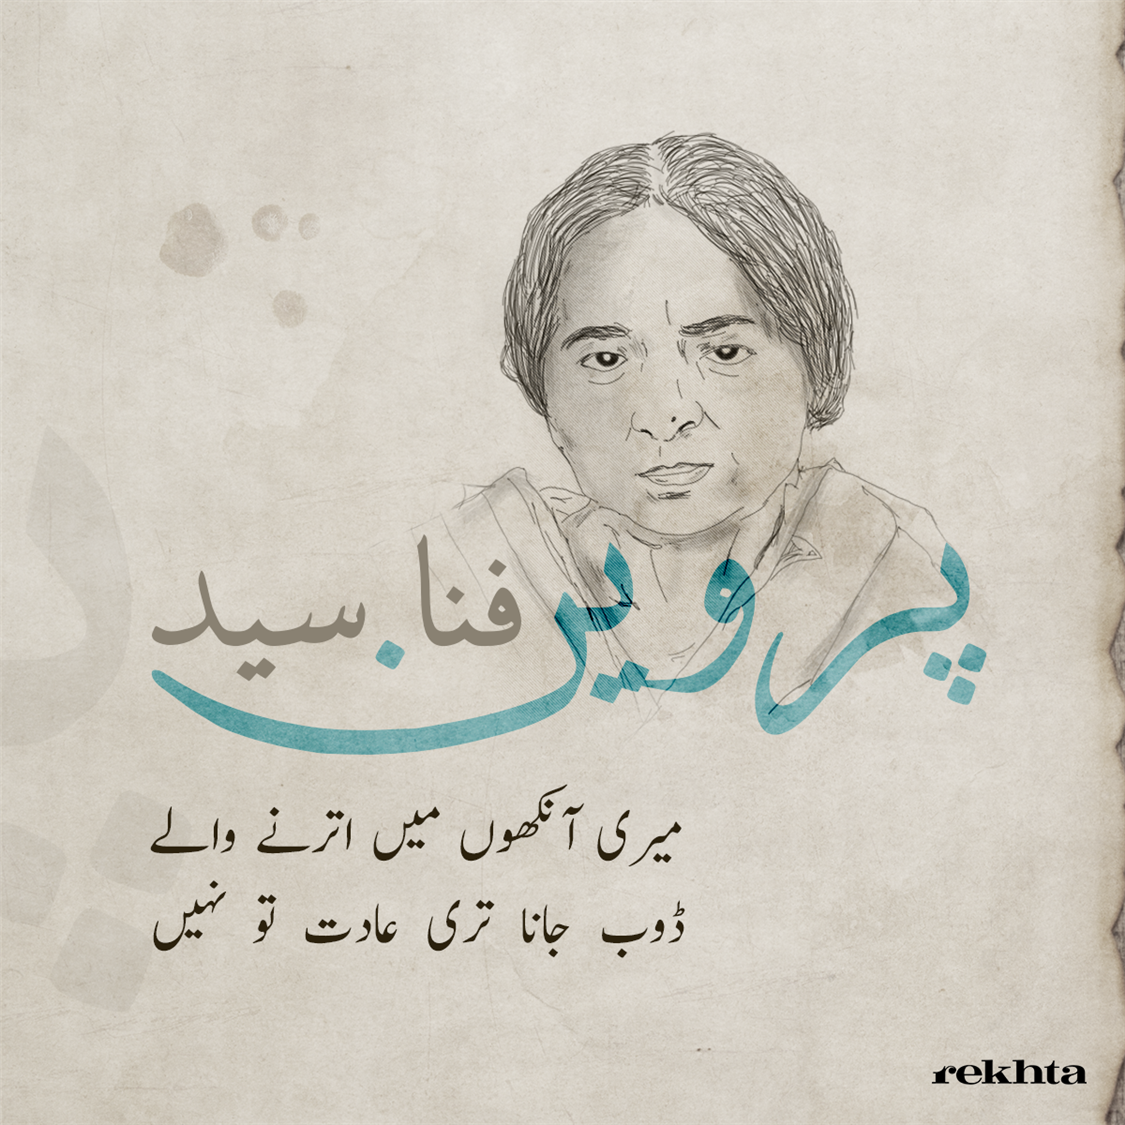 پروین فنا سید
میری آنکھوں میں اترنے والے
ڈوب جانا تری عادت تو نہیں
rekhta